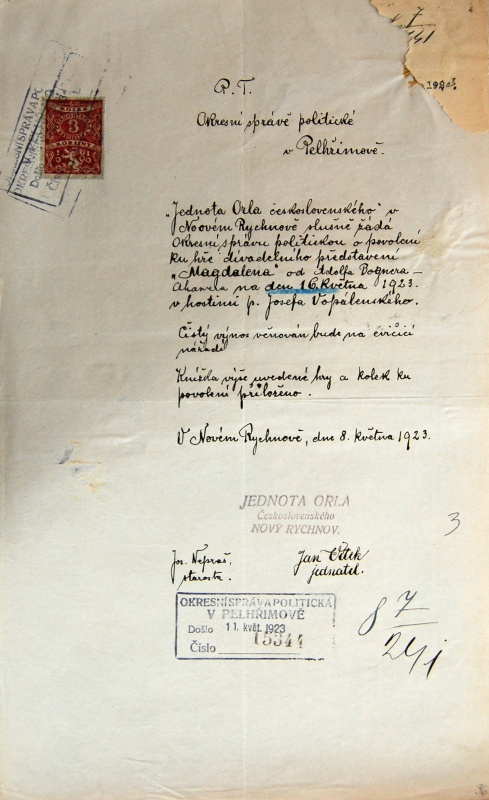 8 7
241
1923
P. T.
Okresní správě politické
v Pelhřimově.
OKRESNÍ SPRÁVA POL
Došlo
Čísl
KOLEK
3
KORUNY
„Jednota Orla československého" v
Novém Rychnově slušně žádá
Okresní správu politickou o povolení
ku hře divadelního představení
„Magdalena" od Adolfa Bognera –
na den 16. května 1923.
v hostinci p. Josefa Vopálenského.
Čistý výnos věnován bude na cvičící
nářadí
Knížka výše uvedené hry a kolek ku
povolení přiloženo.
V Novém Rychnově, dne 8. května 1923.
JEDNOTA ORLA
Československého
NOVÝ RYCHNOV.
3
Jos. Nepraš,
starosta.
Jan
jednatel.
OKRESNÍ SPRÁVA POLITICKÁ
V PELHŘIMOVĚ
Došlo 11. květ. 1923
Číslo 15344
8 7
24